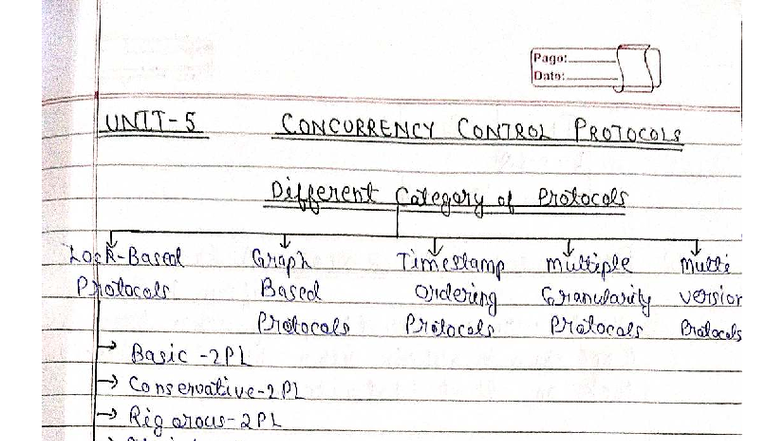 Page:
Date:
UNIT-5 CONCURRENCY CONTROL PROTOCOLS
Different Category of Protocols
Lock-Based Graph Timestamp Multiple Multi
Protocols Based Ordering Granularity version
Protocols Protocols Protocols Protocols
→ Basic -2PL
→ Conservative-2PL
→ Rigorous-2PL